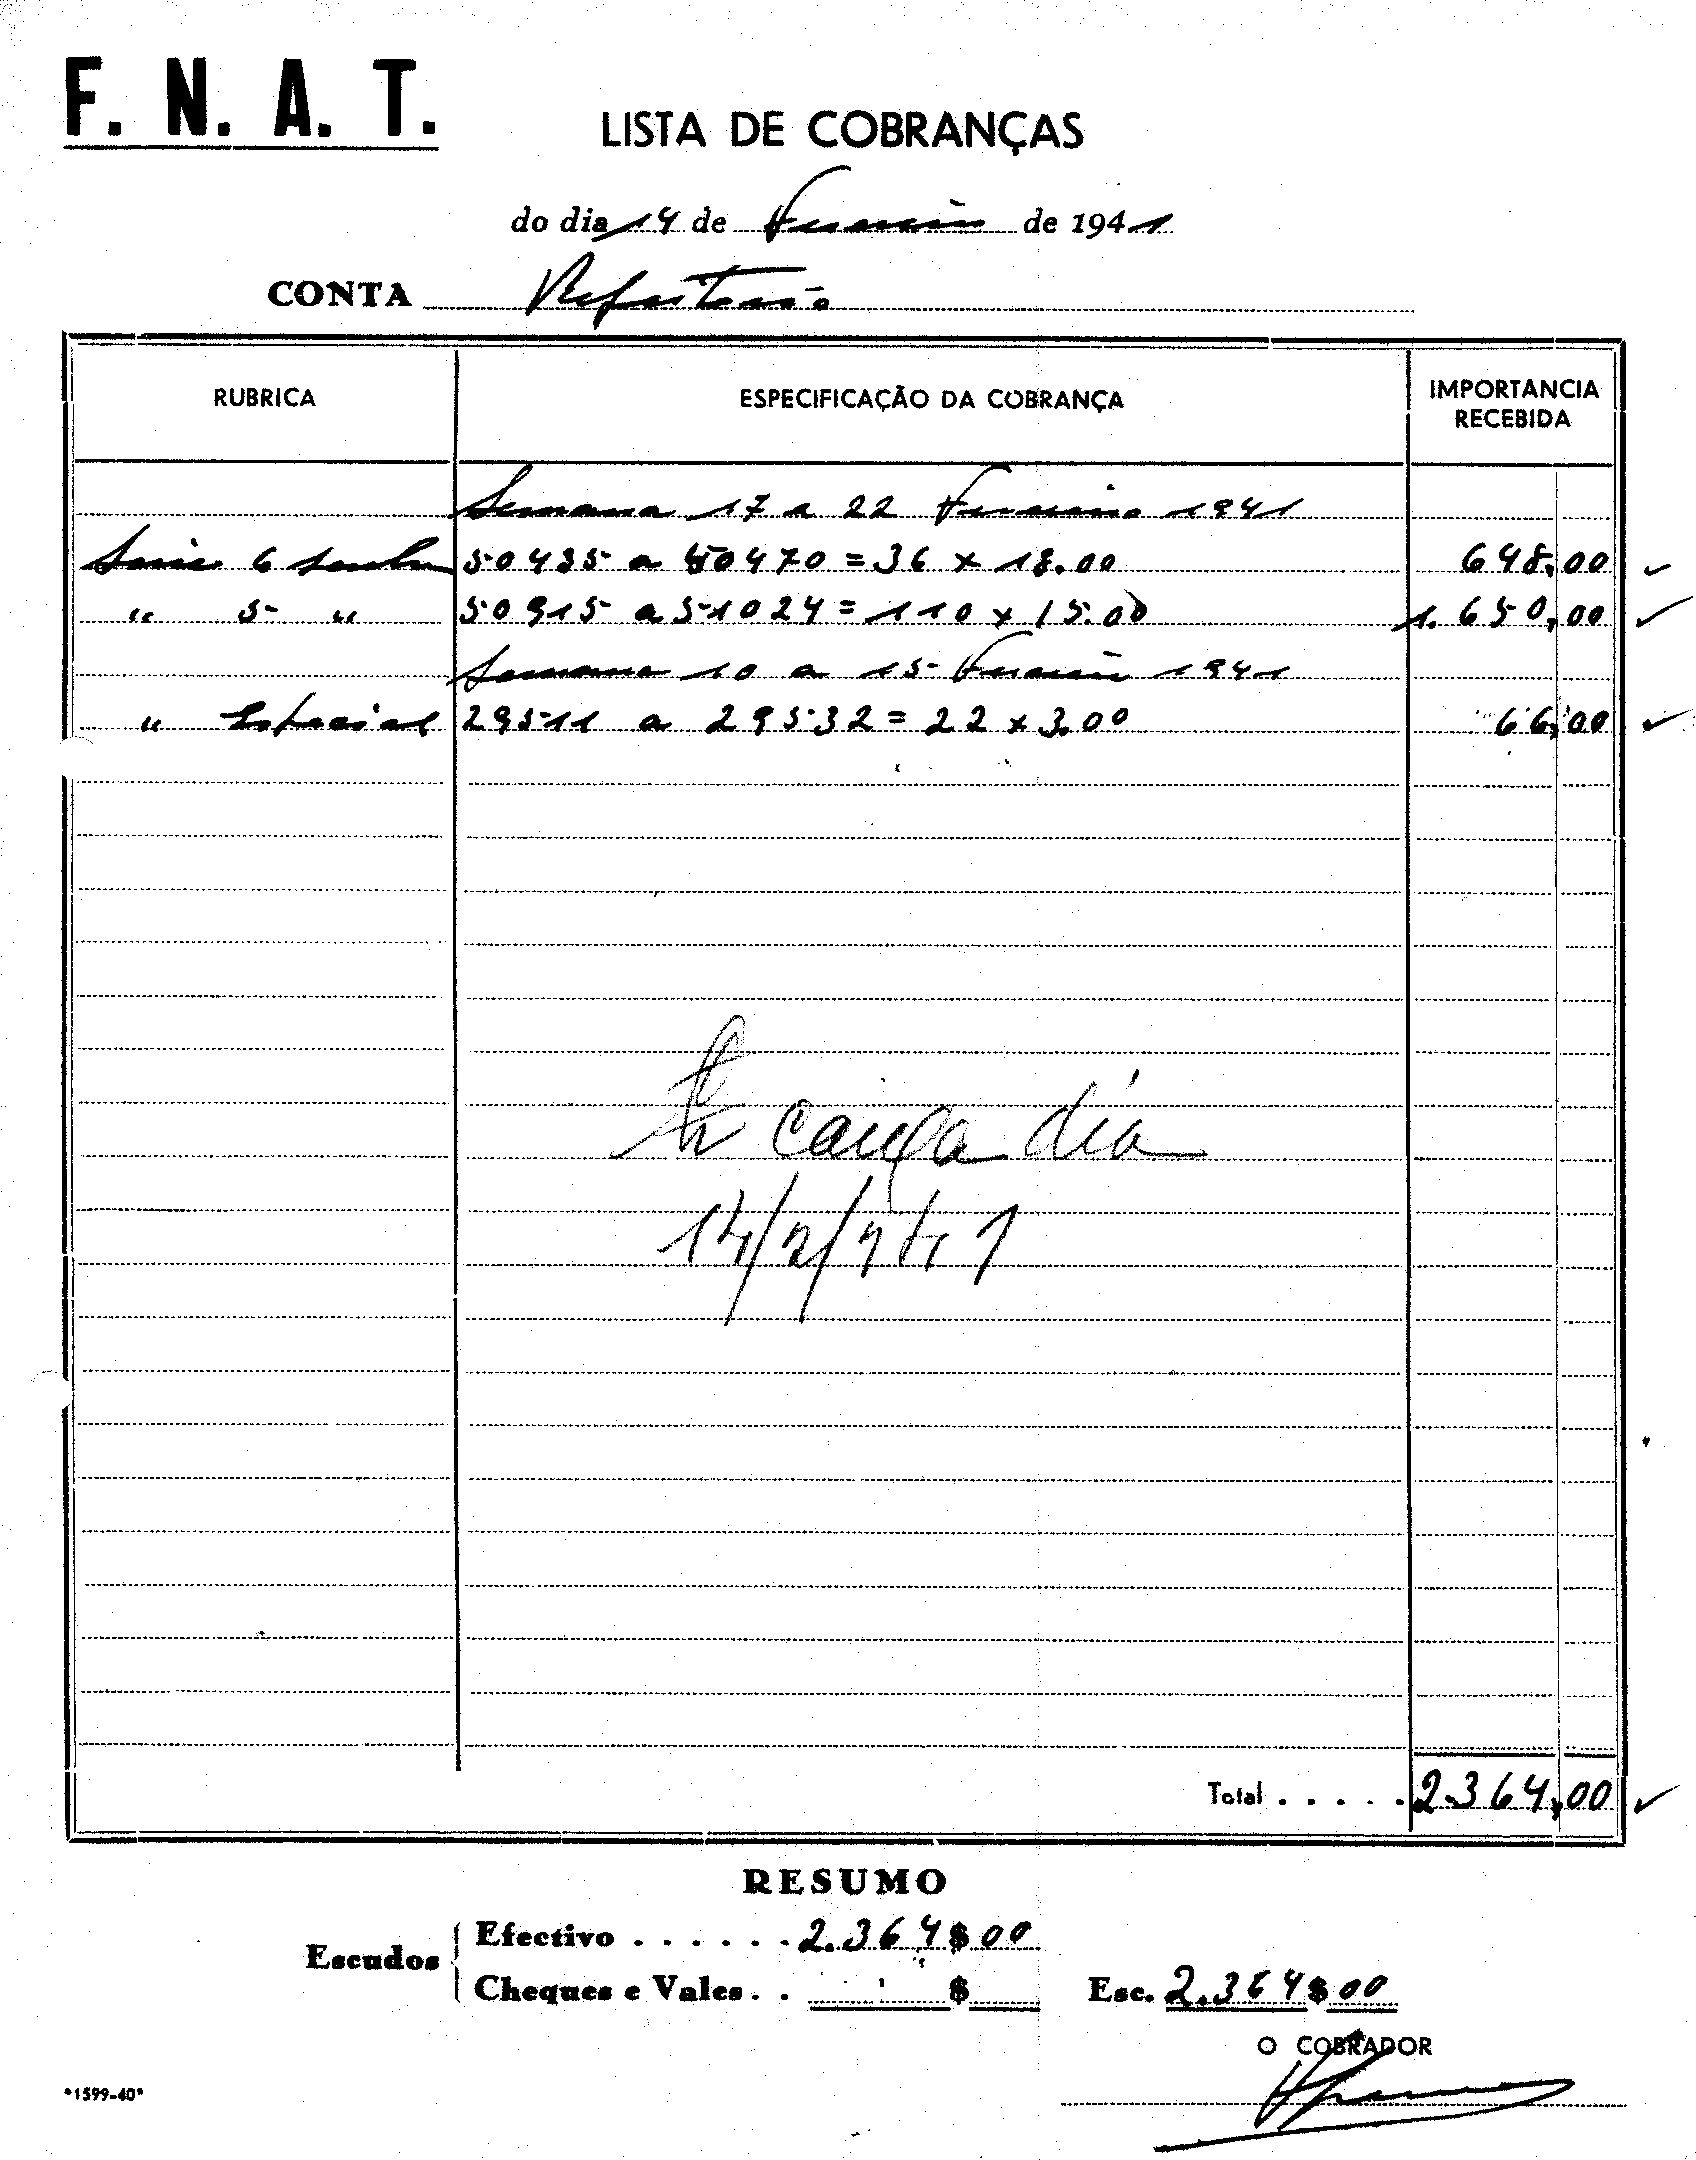 F. N. A. T.
LISTA DE COBRANÇAS
do dia 14 de Fevereiro de 1941
CONTA Refeitório
RUBRICA ESPECIFICAÇÃO DA COBRANÇA IMPORTANCIA RECEBIDA
Semana 17 a 22 Fevereiro 1941
Série 6 senhas 50435 a 50470 = 36 x 18.00 648,00
" 5 " 50915 a 51024 = 110 x 15.00 1.650,00
Semana 10 a 15 Fevereiro 1941
" Especial 29511 a 29532 = 22 x 3.00 66,00
caixa dia
14/2/941
Total . . . . . 2.364,00
RESUMO
Escudos
Efectivo . . . . . . 2.364$00
Cheques e Vales. . $
Esc. 2.364$00
O COBRADOR
"1599-40"